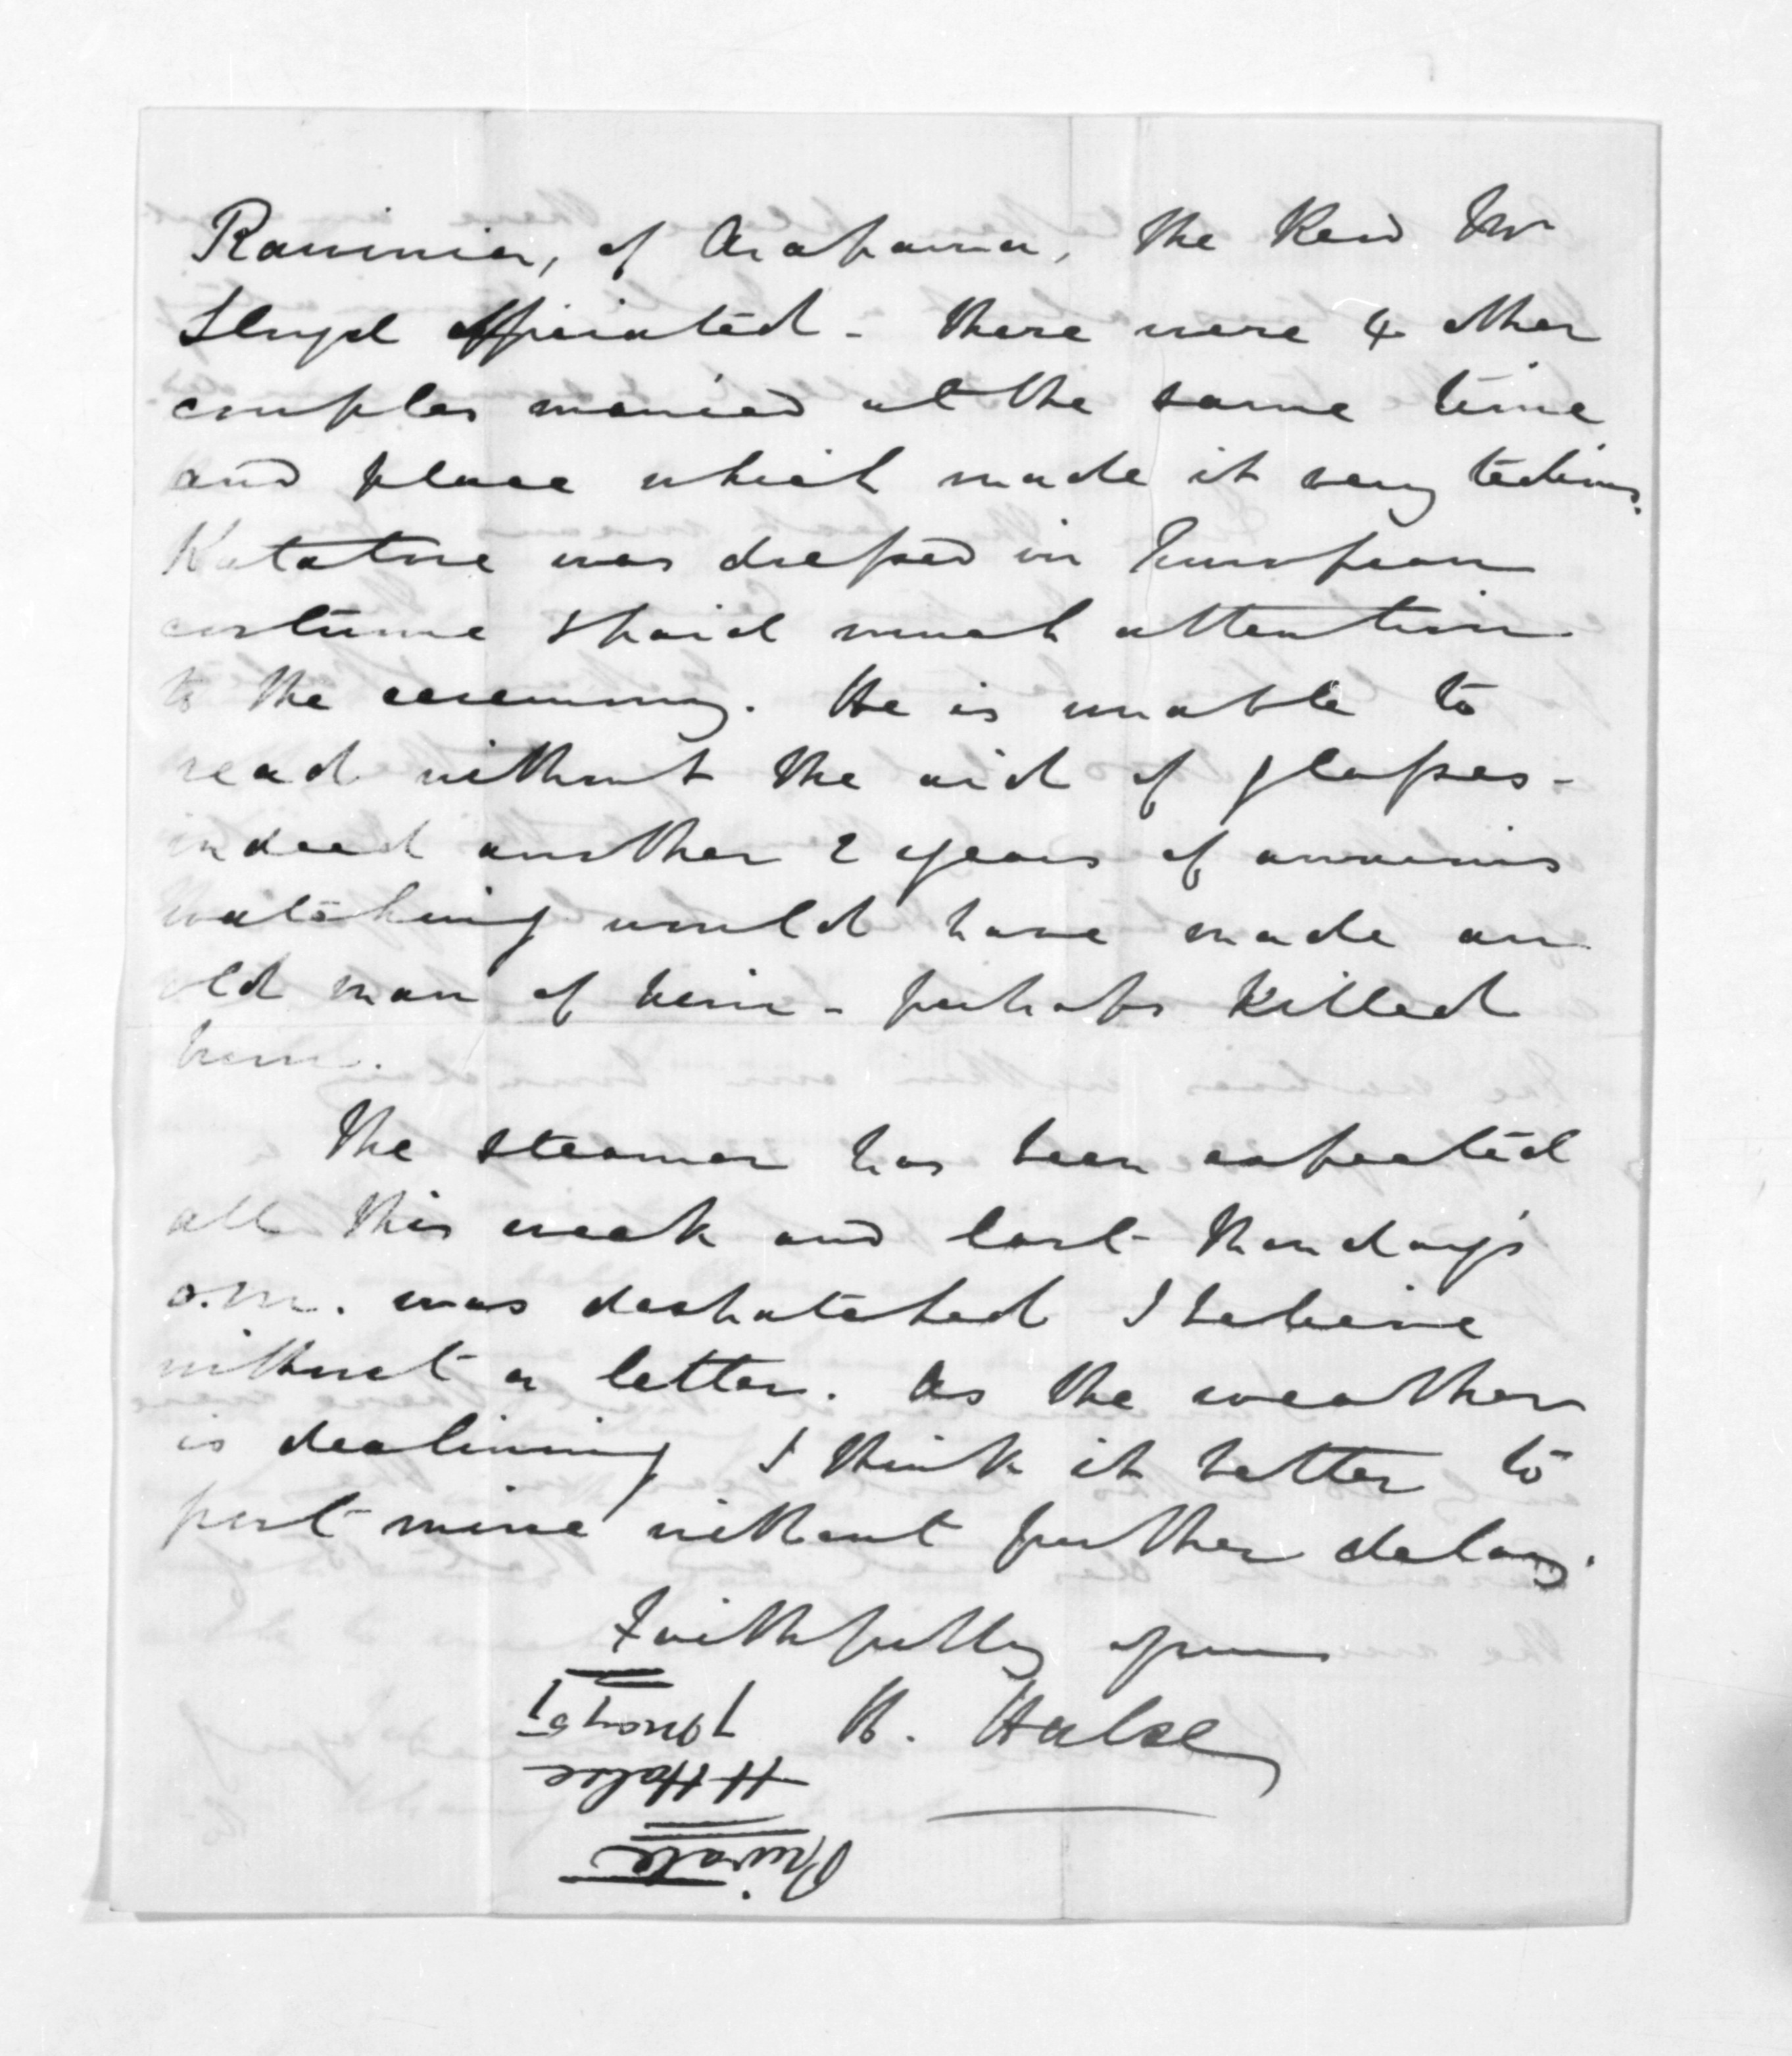 Rawinia, of Arapawa, the Revd Mr
Lloyd officiated - there were 4 other
couples married at the same time
and place which made it very tedious.
Katatore was dressed in European
costume & paid much attention
to the ceremony. He is unable to
read without the aid of glasses -
indeed another 2 years of anxious
watching would have made an
old man of him - perhaps killed
him.
The steamer has been expected
all this week and last Monday's
o.m. was despatched I believe
without a letter. As the weather
is declining I think it better to
post mine without further delay.
Faithfully yours
H. Halse
Private
H Halse